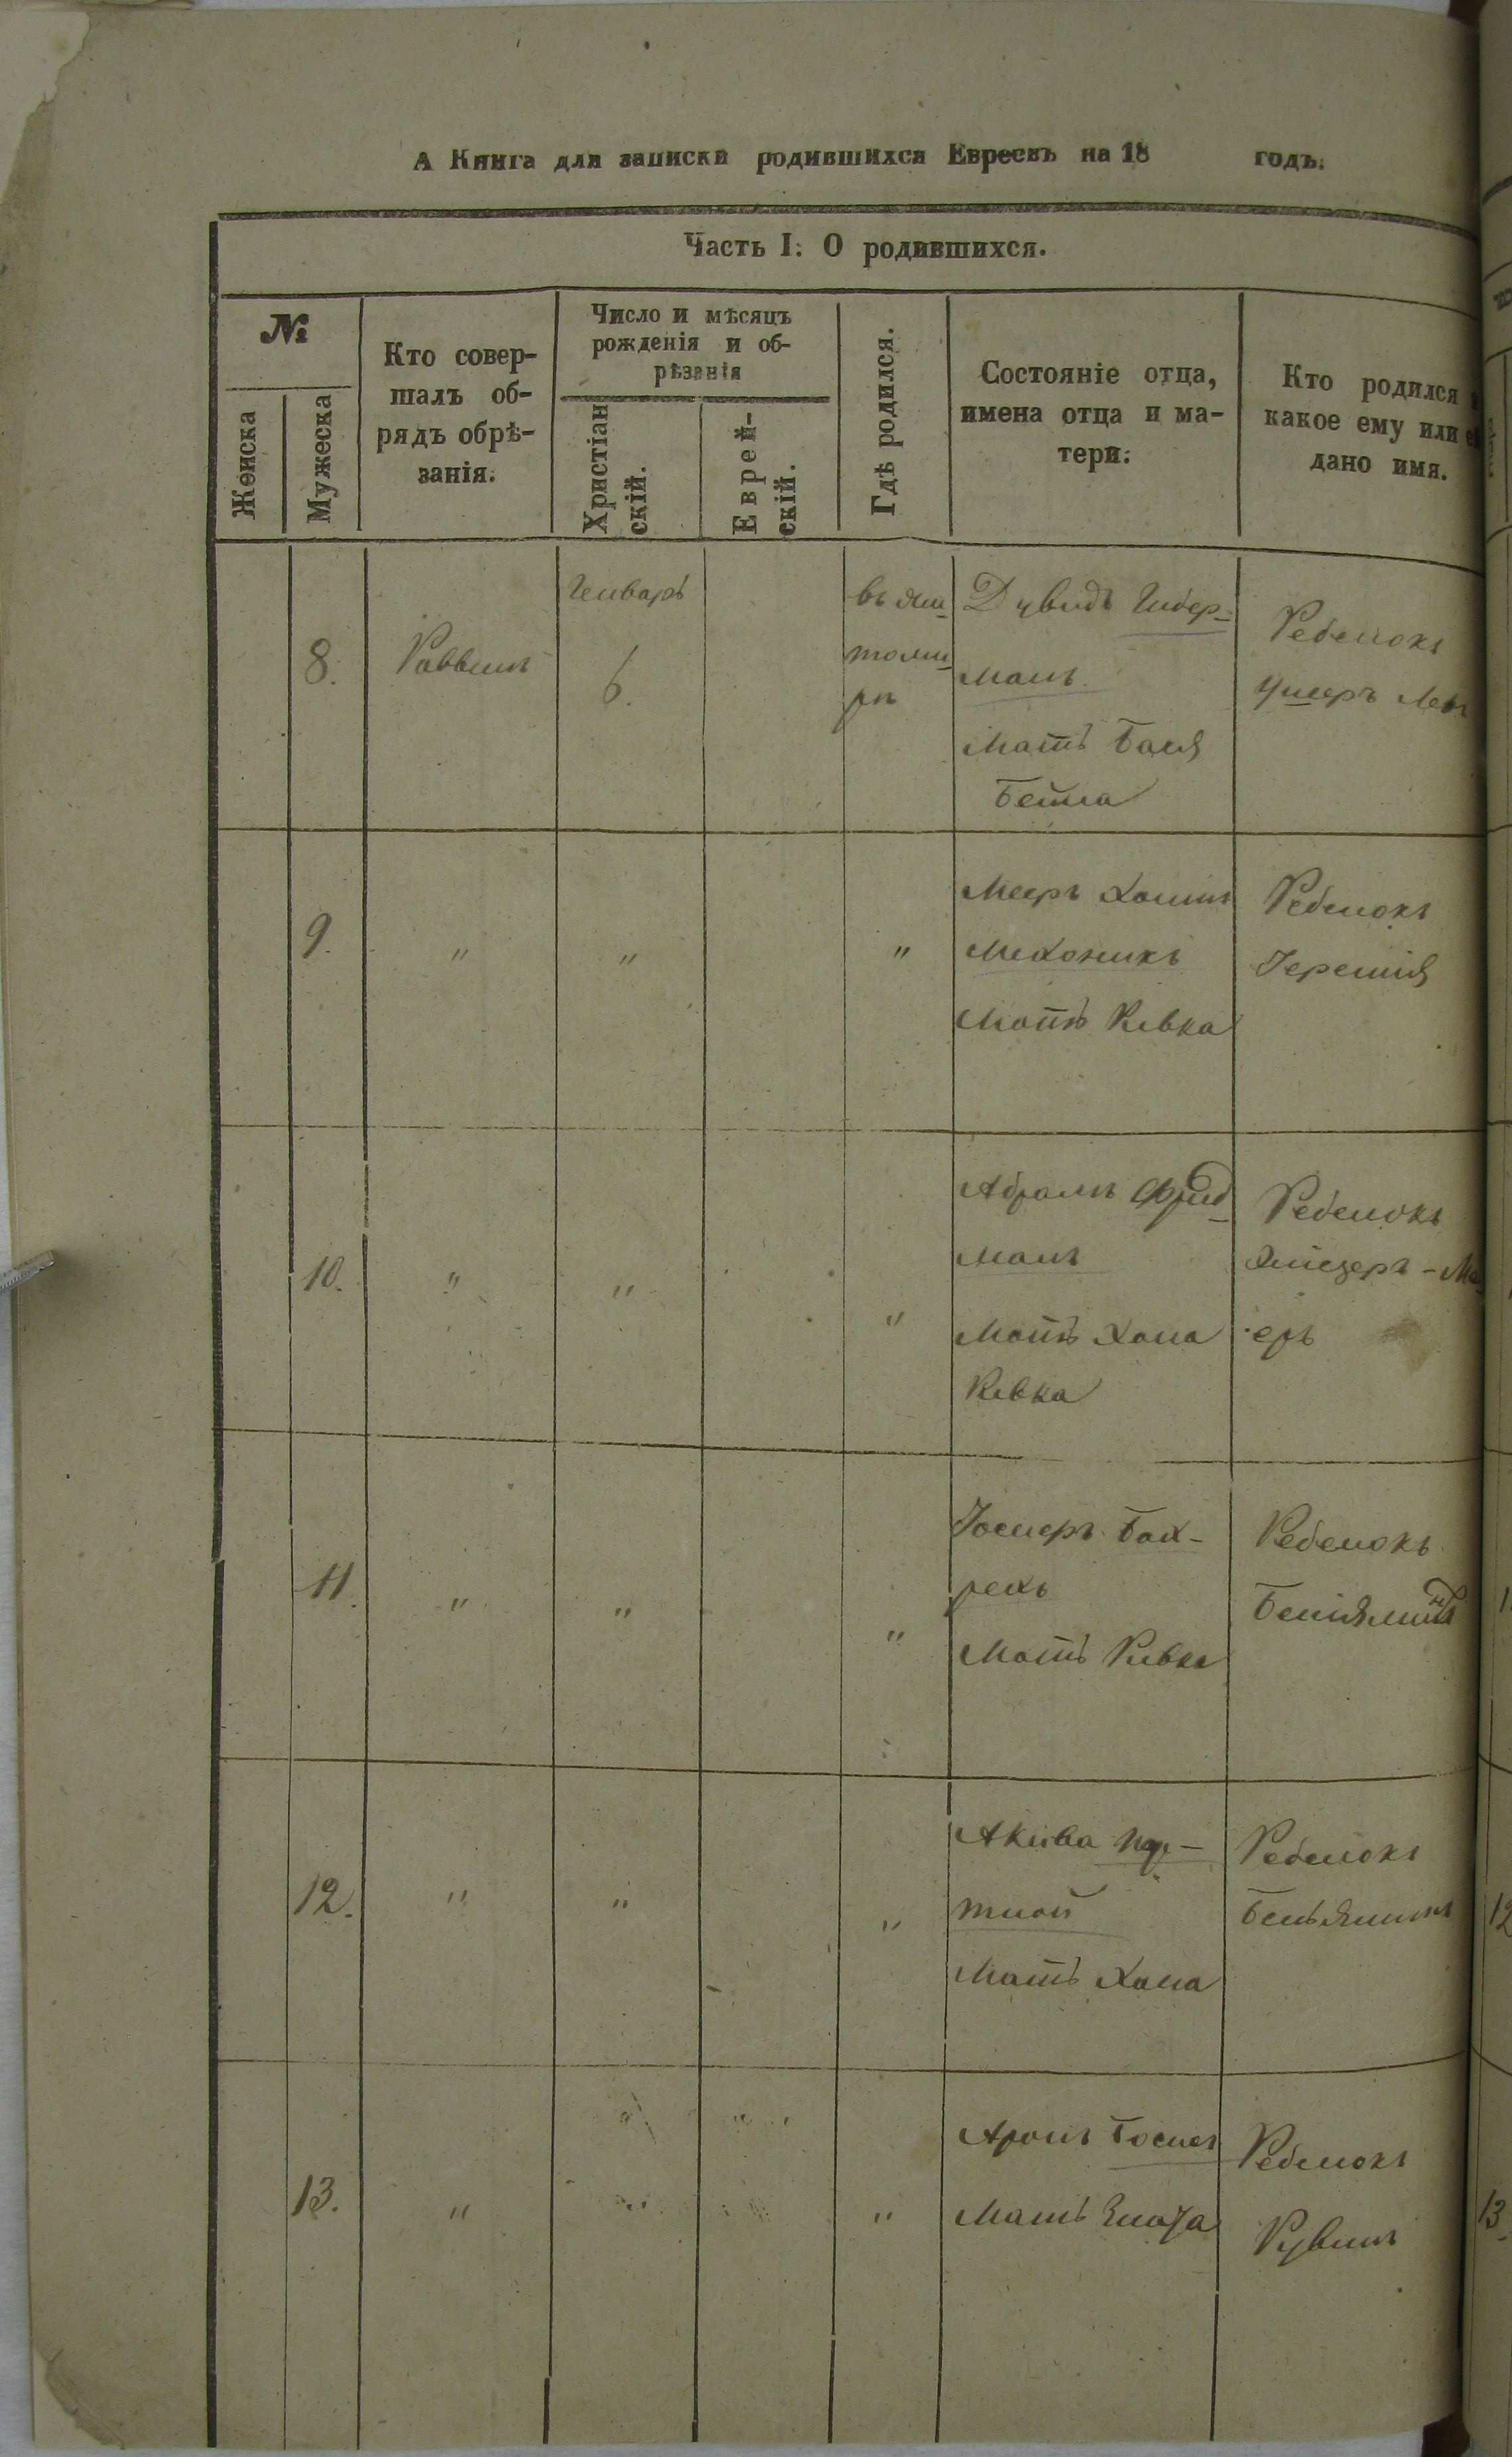 А Книга для записки родившихся Евреевъ на 18 годъ.
Часть I: О родившихся.
№
Женска
Мужеска
Кто совер-
шалъ об-
рядъ обрѣ-
занія.
Число и мѣсяцъ
рожденія и об-
рѣзанія
Христіан
скій.
Еврей-
скій.
Гдѣ родился.
Состояніе отца,
имена отца и ма-
тери.
Кто родился
какое ему или
дано имя.
8.
Раввинъ
Генварь
6.
въ Жи-
томи-
рѣ
Дувидъ Гибер-
манъ
Мать Бася
Бейла
Ребенокъ
Ушеръ
9.
"
"
"
Мееръ Хаимъ
Мать Ривка
Ребенокъ
Іеремія
10.
"
"
"
Абрамъ Фрид-
манъ
Мать Хана
Ривка
Ребенокъ
еръ
11.
"
"
"
Бах-
рахъ
Мать Ривка
Ребенокъ
Беніяминъ
12.
"
"
"
Акива Пор-
тной
Мать Хана
Ребенокъ
Беньяминъ
13.
"
"
"
Аронъ
Мать Злата
Ребенокъ
Рувинъ
12
13